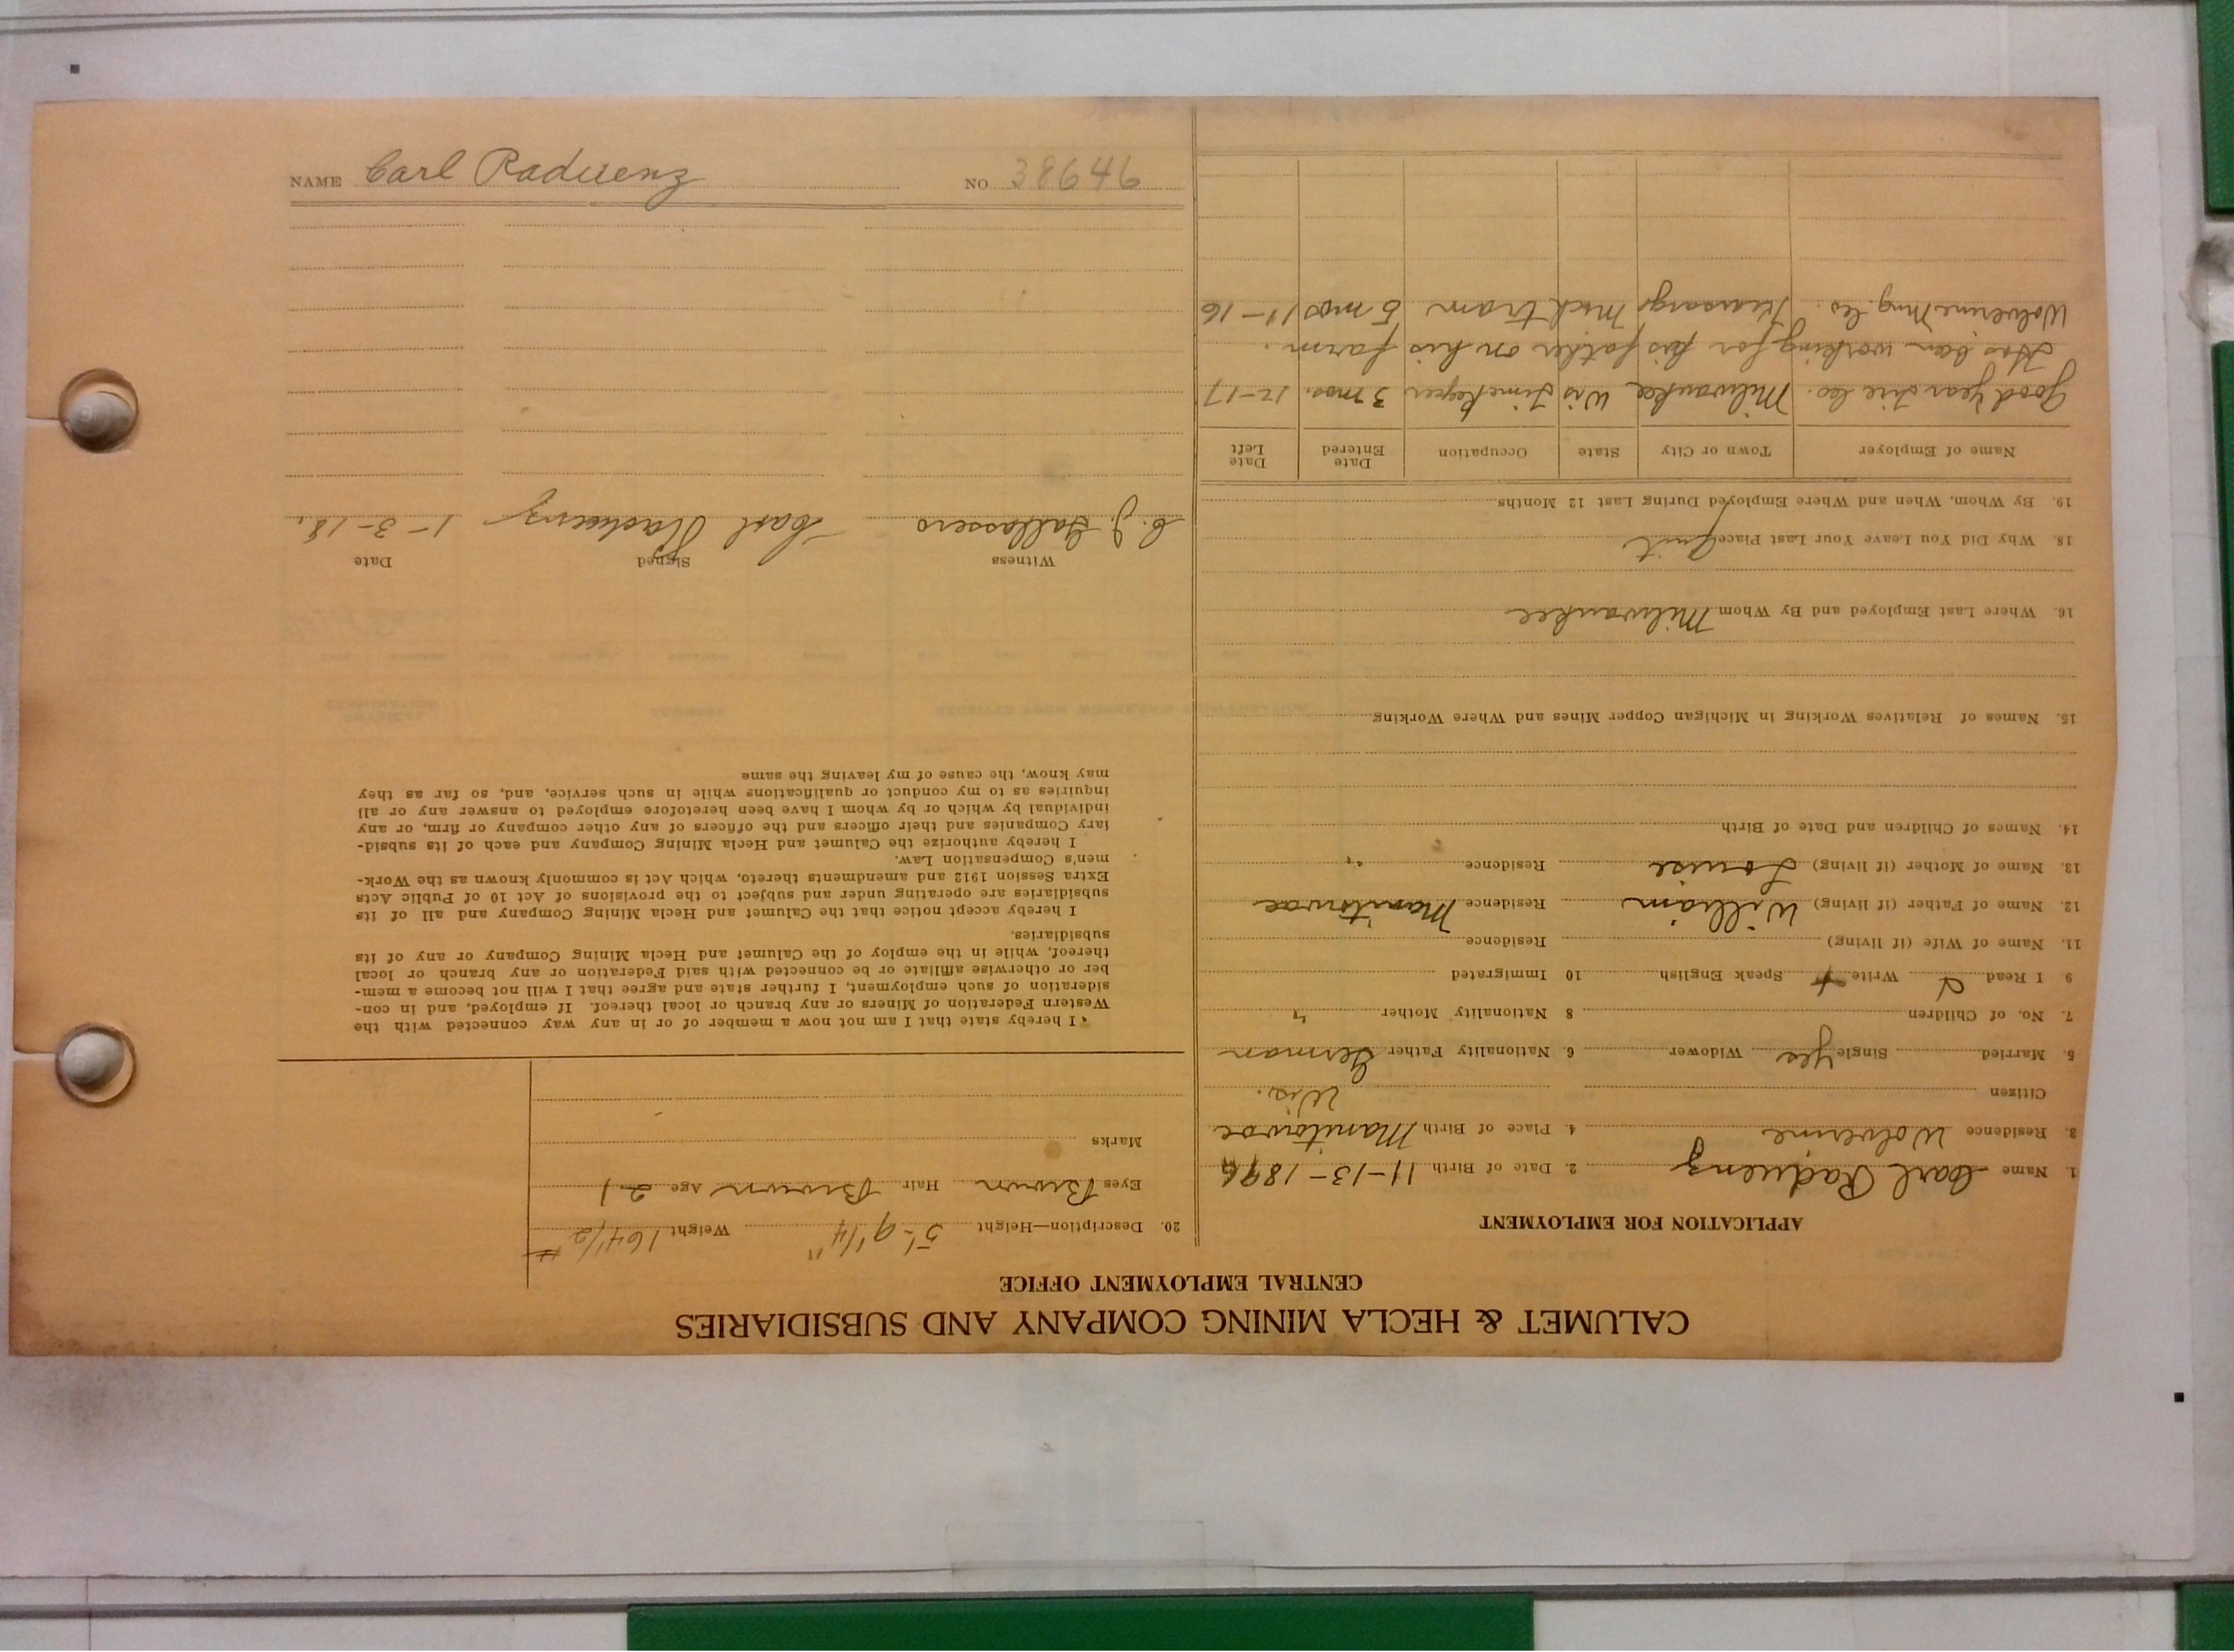 CALUMET & HECLA MINING COMPANY AND SUBSIDIARIES
CENTRAL EMPLOYMENT OFFICE
APPLICATION FOR EMPLOYMENT
1. Name Carl Raduenz 2. Date of Birth 11-13-1896
3. Residence Wolverine 4. Place of Birth Manitowoc
Citizen Wis.
5. Married Single Yes Widower 6. Nationality Father German
7. No. of Children 8 Nationality Mother "
9 I Read Write Speak English 10 Immigrated
11. Name of Wife (if living) Residence
12. Name of Father (if living) William Residence Manitowoc
13. Name of Mother (if living) Louise Residence "
14. Names of Children and Date of Birth
15. Names of Relatives Working in Michigan Copper Mines and Where Working
16. Where Last Employed and By Whom Milwaukee
18. Why Did You Leave Your Last Place Quit
19. By Whom, When and Where Employed During Last 12 Months
Name of Employer Town or City State Occupation Date Entered Date Left
Good Year Tire Co. Milwaukee Wis Timekeeper 3 mos. 12-17
Has been working for his father on his farm.
Wolverine Mng. Co. Kearsarge Mich tram 5 mos 11-16
20. Description—Height 5'-9 1/4" Weight 164 1/2 #
Eyes Brown Hair Brown Age 21
Marks
I hereby state that I am not now a member of or in any way connected with the
Western Federation of Miners or any branch or local thereof. If employed, and in con-
sideration of such employment, I further state and agree that I will not become a mem-
ber or otherwise affiliate or be connected with said Federation or any branch or local
thereof, while in the employ of the Calumet and Hecla Mining Company or any of its
subsidiaries.
I hereby accept notice that the Calumet and Hecla Mining Company and all of its
subsidiaries are operating under and subject to the provisions of Act 10 of Public Acts
Extra Session 1912 and amendments thereto, which Act is commonly known as the Work-
men's Compensation Law.
I hereby authorize the Calumet and Hecla Mining Company and each of its subsid-
iary Companies and their officers and the officers of any other company or firm, or any
individual by which or by whom I have been heretofore employed to answer any or all
inquiries as to my conduct or qualifications while in such service, and, so far as they
may know, the cause of my leaving the same
Witness Signed Date
C. J. Gallassero Carl Raduenz 1-3-18.
NAME Carl Raduenz NO 38646